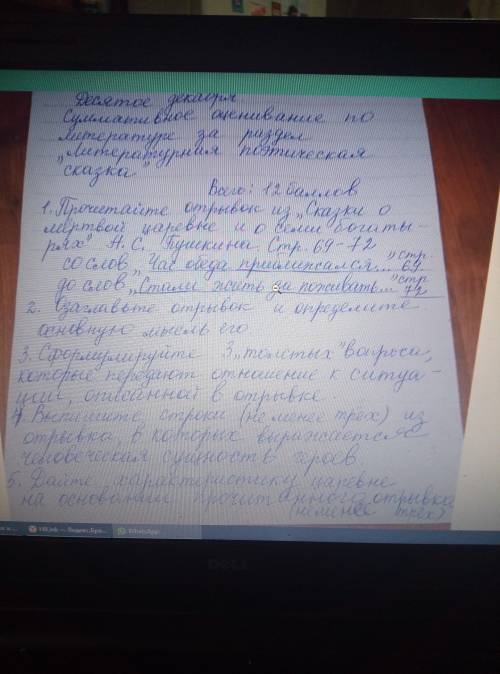 Десятое декабря
Суммативное оценивание по
литературе за раздел
„Литературная поэтическая
сказка"
Всего: 12 баллов
1. Прочитайте отрывок из „Сказки о
мёртвой царевне и о семи богаты-
рях" А.С. Пушкина. Стр. 69-72
со слов „Час обеда приближался..." стр. 69
до слов „Стали жить да поживать..." стр 72
2. Озаглавьте отрывок и определите
основную мысль его
3. Сформулируйте 3 „толстых" вопроса,
которые передают отношение к ситуа-
ции, описанной в отрывке.
4. Выпишите строки (не менее трёх) из
отрывка, в которых выражается
человеческая сущность героев.
5. Дайте характеристику царевне
на основании прочитанного отрывка
(не менее трёх)
WhatsApp
DELL